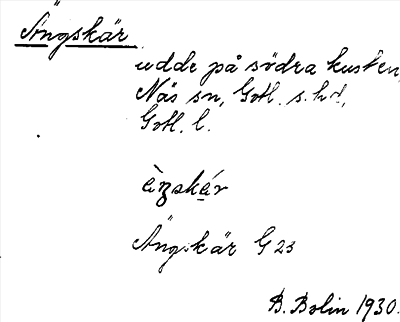 Ängskär
udde på södra kusten,
Näs sn, Gotl. s. hd,
Gotl. l.
ä̀ŋskár
Ängskär G 23
B. Bolin 1930.